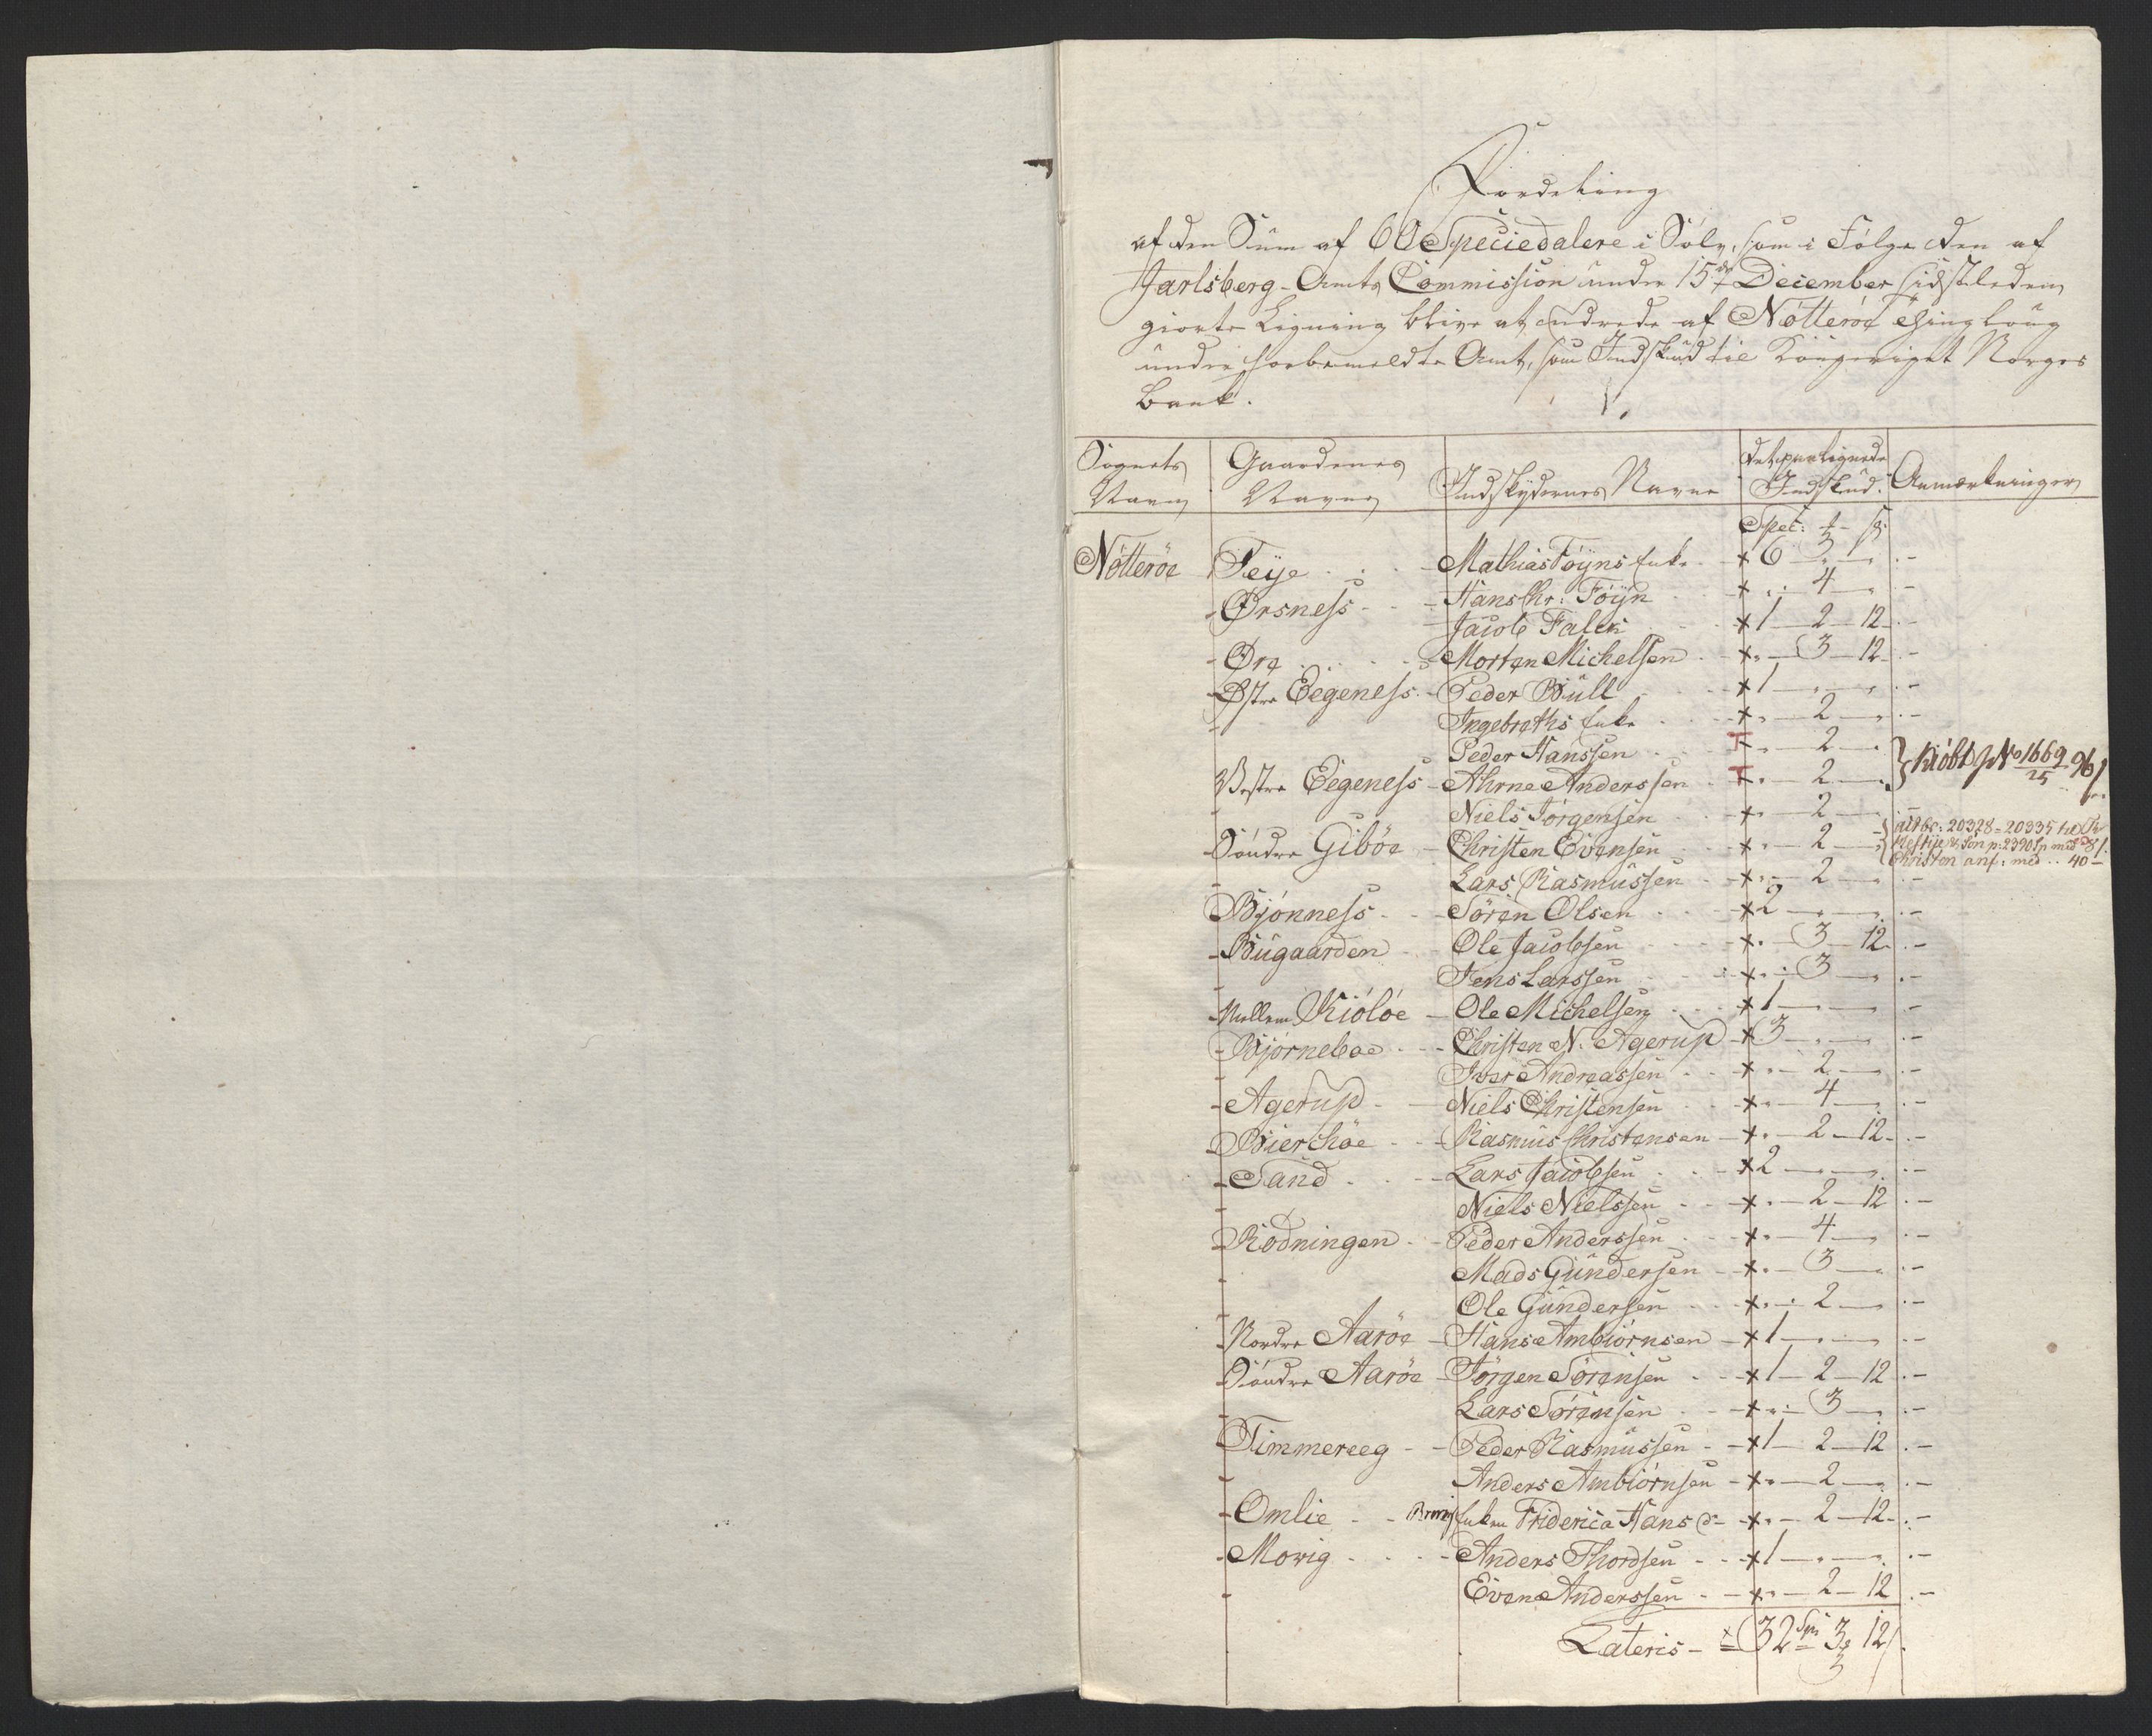 Fordeling
af den Sum af 60 Speciedalere i Sølv, som i Følge den af
Jarlsberg-Amts Commission under 15de December sidstleden
giorte Ligning blive at udrede af Nötteröe Thinglaug
under forbemeldte Amt, som Indskud til Kongeriget Norges
Bank.
Sognets Navn Gaardenes Navne Indskydernes Navne Det paalignede Indskud. Anmærkninger
Spec: ß
Nötteröe Teije Mathias Föyns Enke x 6
- Örsness Hans Chr: Föÿn x 4
Jacob Falck x 1 2 12
- Öre Morten Michelsen x 3 12
- Östre Eegeness Peder Bull x 1
- Ingebreths Enke x 2
Peder Hanssen 2
Vestre Eegeness Ahrne Anderssen 2 } Kiöbt No 1669
- Niels Jörgensen x 2
Söndre Giböe Christen Evensen x 2 20328 - 20335
Christen anf: med 40
- Lars Rasmussen x 2
Bjönness Sören Olsen x 2
- Bugaarden Ole Jacobsen x 3 12
- Jens Larssen x 3
- Mellem Kiölöe Ole Michelsen x 1
- Bjørneboe Christen N. Agerup x 3
- Iver Andreassen x 2
- Agerup Niels Christensen x 4
- Bierchöe Rasmus Christensen x 2 12
- Sand Lars Jacobsen x 2
- Niels Nielssen x 2 12
- Rödningen Peder Anderssen x 4
- Mads Gundersen x 3
- Ole Gundersen x 2
- Nordre Aaröe Hans Ambiörnsen x 1
- Söndre Aaröe Jörgen Sörensen x 1 2 12
- Lars Sörensen x 3
- Timmereeg Peder Rasmussen x 1 2 12
- Anders Ambiörnsen x 2
- Omlie Enken Friderica Hans D. x 2 12
- Movig Anders Thordsen x 1
- Even Anderssen x 2 12
Lateris 32 Spe 3 12
3